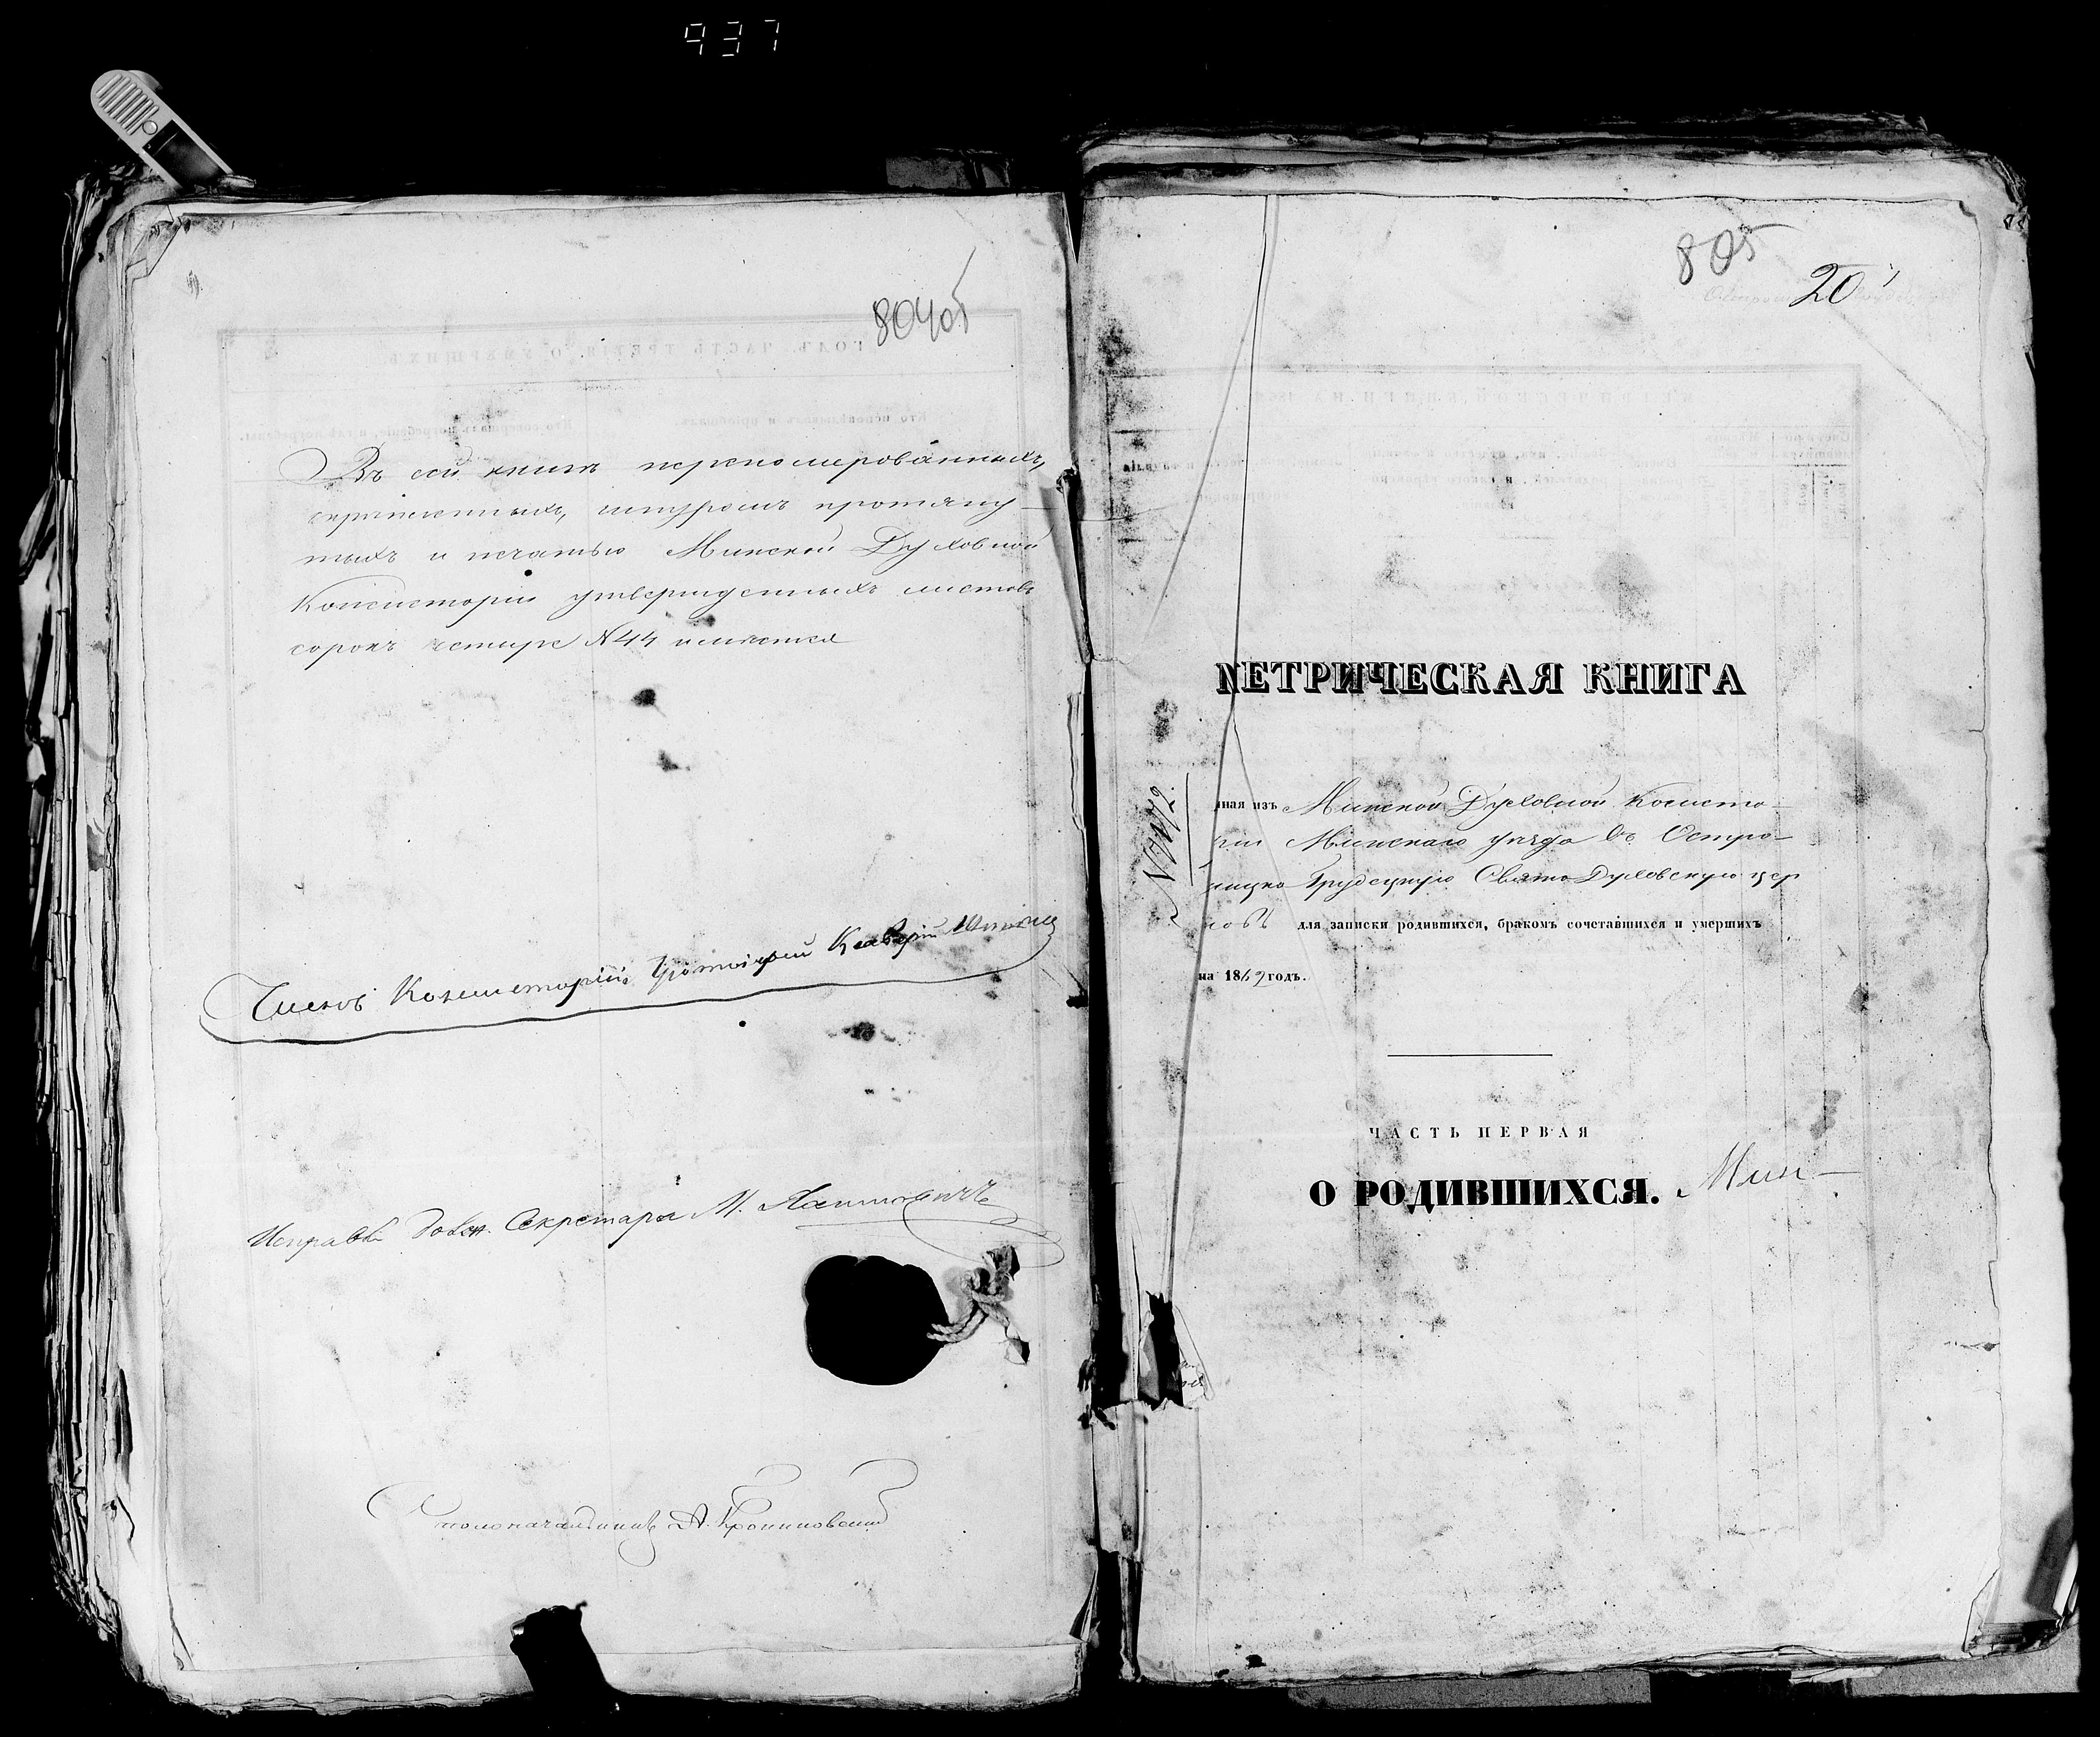 937
804об
Въ сей книгѣ перенумерованныхъ,
скрѣпленныхъ, шнуромъ протяну-
тыхъ и печатью Минской Духовной
Консисторіи утвержденныхъ листовъ
сорокъ четыре №44 имѣется
Членъ Консисторіи Протоіерей
Исправл. долж. Секретаря М.
Столоначальникъ А.
805
20
МЕТРИЧЕСКАЯ КНИГА
нная изъ Минской Духовной Консисто-
ріи Минскаго уѣзда въ Остро-
шицко Грудецкую Свято Духовскую цер
ковь для записки родившихся, бракомъ сочетавшихся и умершихъ
на 1869 годъ.
ЧАСТЬ ПЕРВАЯ
О РОДИВШИХСЯ. Мин-